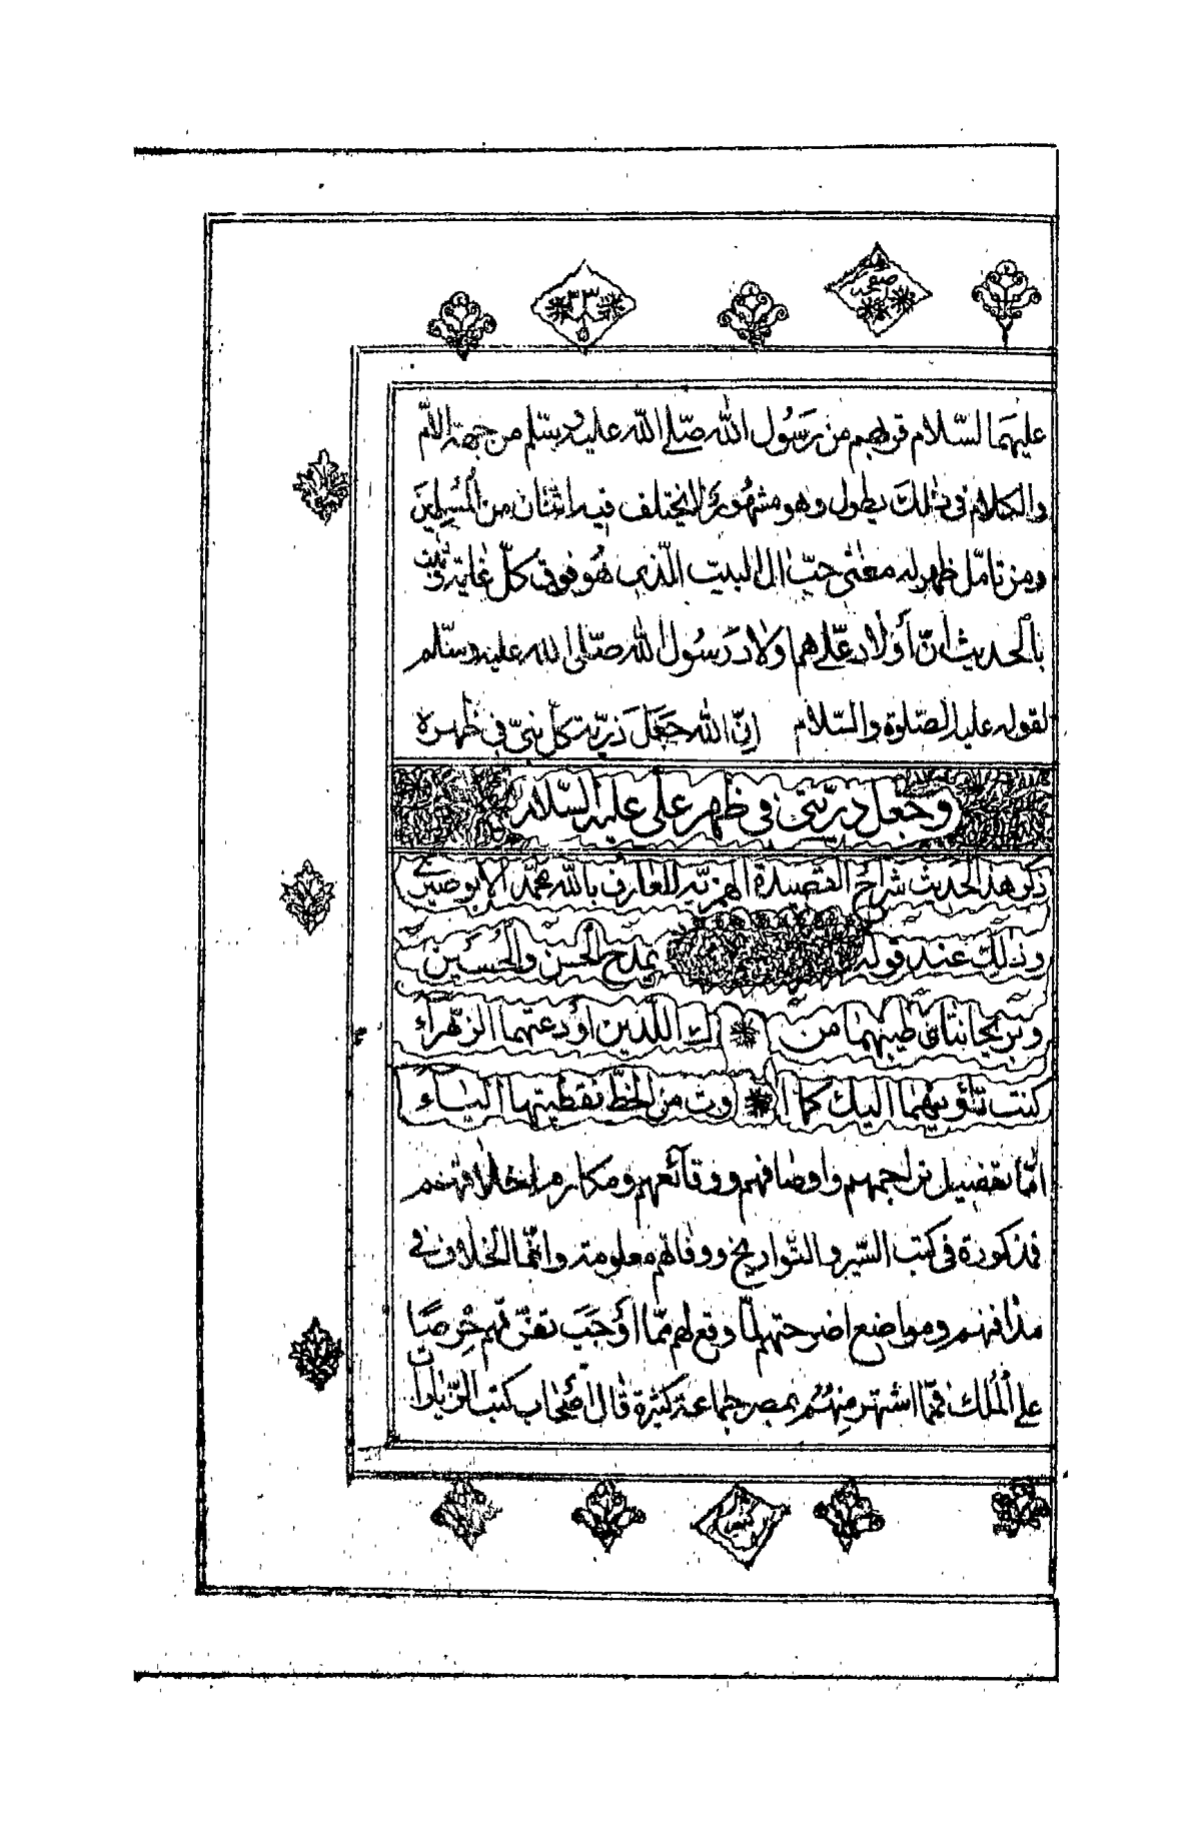 صفحه
٣٣٥
عليهما السّلام قربهم من رسول الله صلّى الله عليه وسلم من جهة الأمّ
والكلام فى ذلك يطول وهو مشهور لا يختلف فيه اثنان من المسلمين
ومن تامّل ظهر له معنى حبّ ال البيت الّذى هو فوق كلّ غاية
بالحديث انّ أولاد علّى هم اولاد رسول الله صلّى الله عليه وسلّم
لقوله عليه الصّلوة والسّلام إنّ الله جعل ذرّية كلّ نبىّ فى ظهره
وجعل ذرّيتى فى ظهر على عليه السّلام
ذكر هذا الحديث شراح القصيدة الهمزيّه للعارف بالله محمّد الابوصيرى
وذلك عند قوله يمدح الحسن والحسين
وبريحانتين طيبهما من ك اللّذين أودعتهما الزّهراء
كنت تؤويهما اليك كما ا وت من الخطّ نقطيتها الياء
امّا تفضيل تراجمهم واوصافهم ووقائعهم ومكارم اخلاقهم
فمذكورة فى كتب السّير والتّواريخ ووفاتهم معلومة وانّما الخلاف فى
مدافنهم ومواضع اضرحتهم لمّا وقع لهم ممّا أوجب تفرّقهم حرصًا
على الملك فممّا اشتهر منهم بمصر جماعة كثيرة قال أصحاب كتب الزّيارات